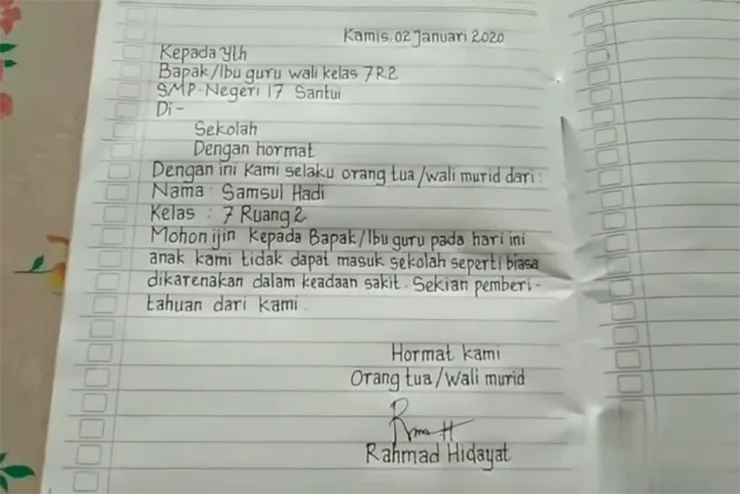 Kamis, 02 Januari 2020
Kepada Yth
Bapak/Ibu guru wali kelas 7R2
SMP-Negeri 17 Santui
Di-
Sekolah
Dengan hormat
Dengan ini Kami selaku orang tua/wali murid dari:
Nama : Samsul Hadi
Kelas : 7 Ruang 2
Mohon ijin Kepada Bapak/Ibu guru pada hari ini
anak kami tidak dapat masuk sekolah seperti biasa
dikarenakan dalam keadaan sakit. Sekian pemberi-
tahuan dari kami.
Hormat kami
Orang tua/Wali murid
Rahmad Hidayat